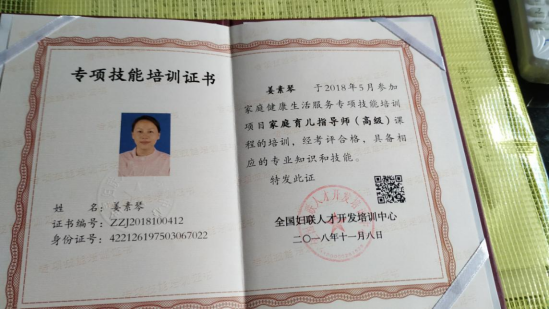 专项技能培训证书
姓 名：姜素琴
证书编号：ZZJ2018100412
身份证号：422126197503067022
姜素琴 于2018年5月参加
家庭健康生活服务专项技能培训
项目家庭育儿指导师（高级）课
程的培训，经考评合格，具备相
应的专业知识和技能。
特发此证
全国妇联人才开发培训中心
二〇一八年十一月八日